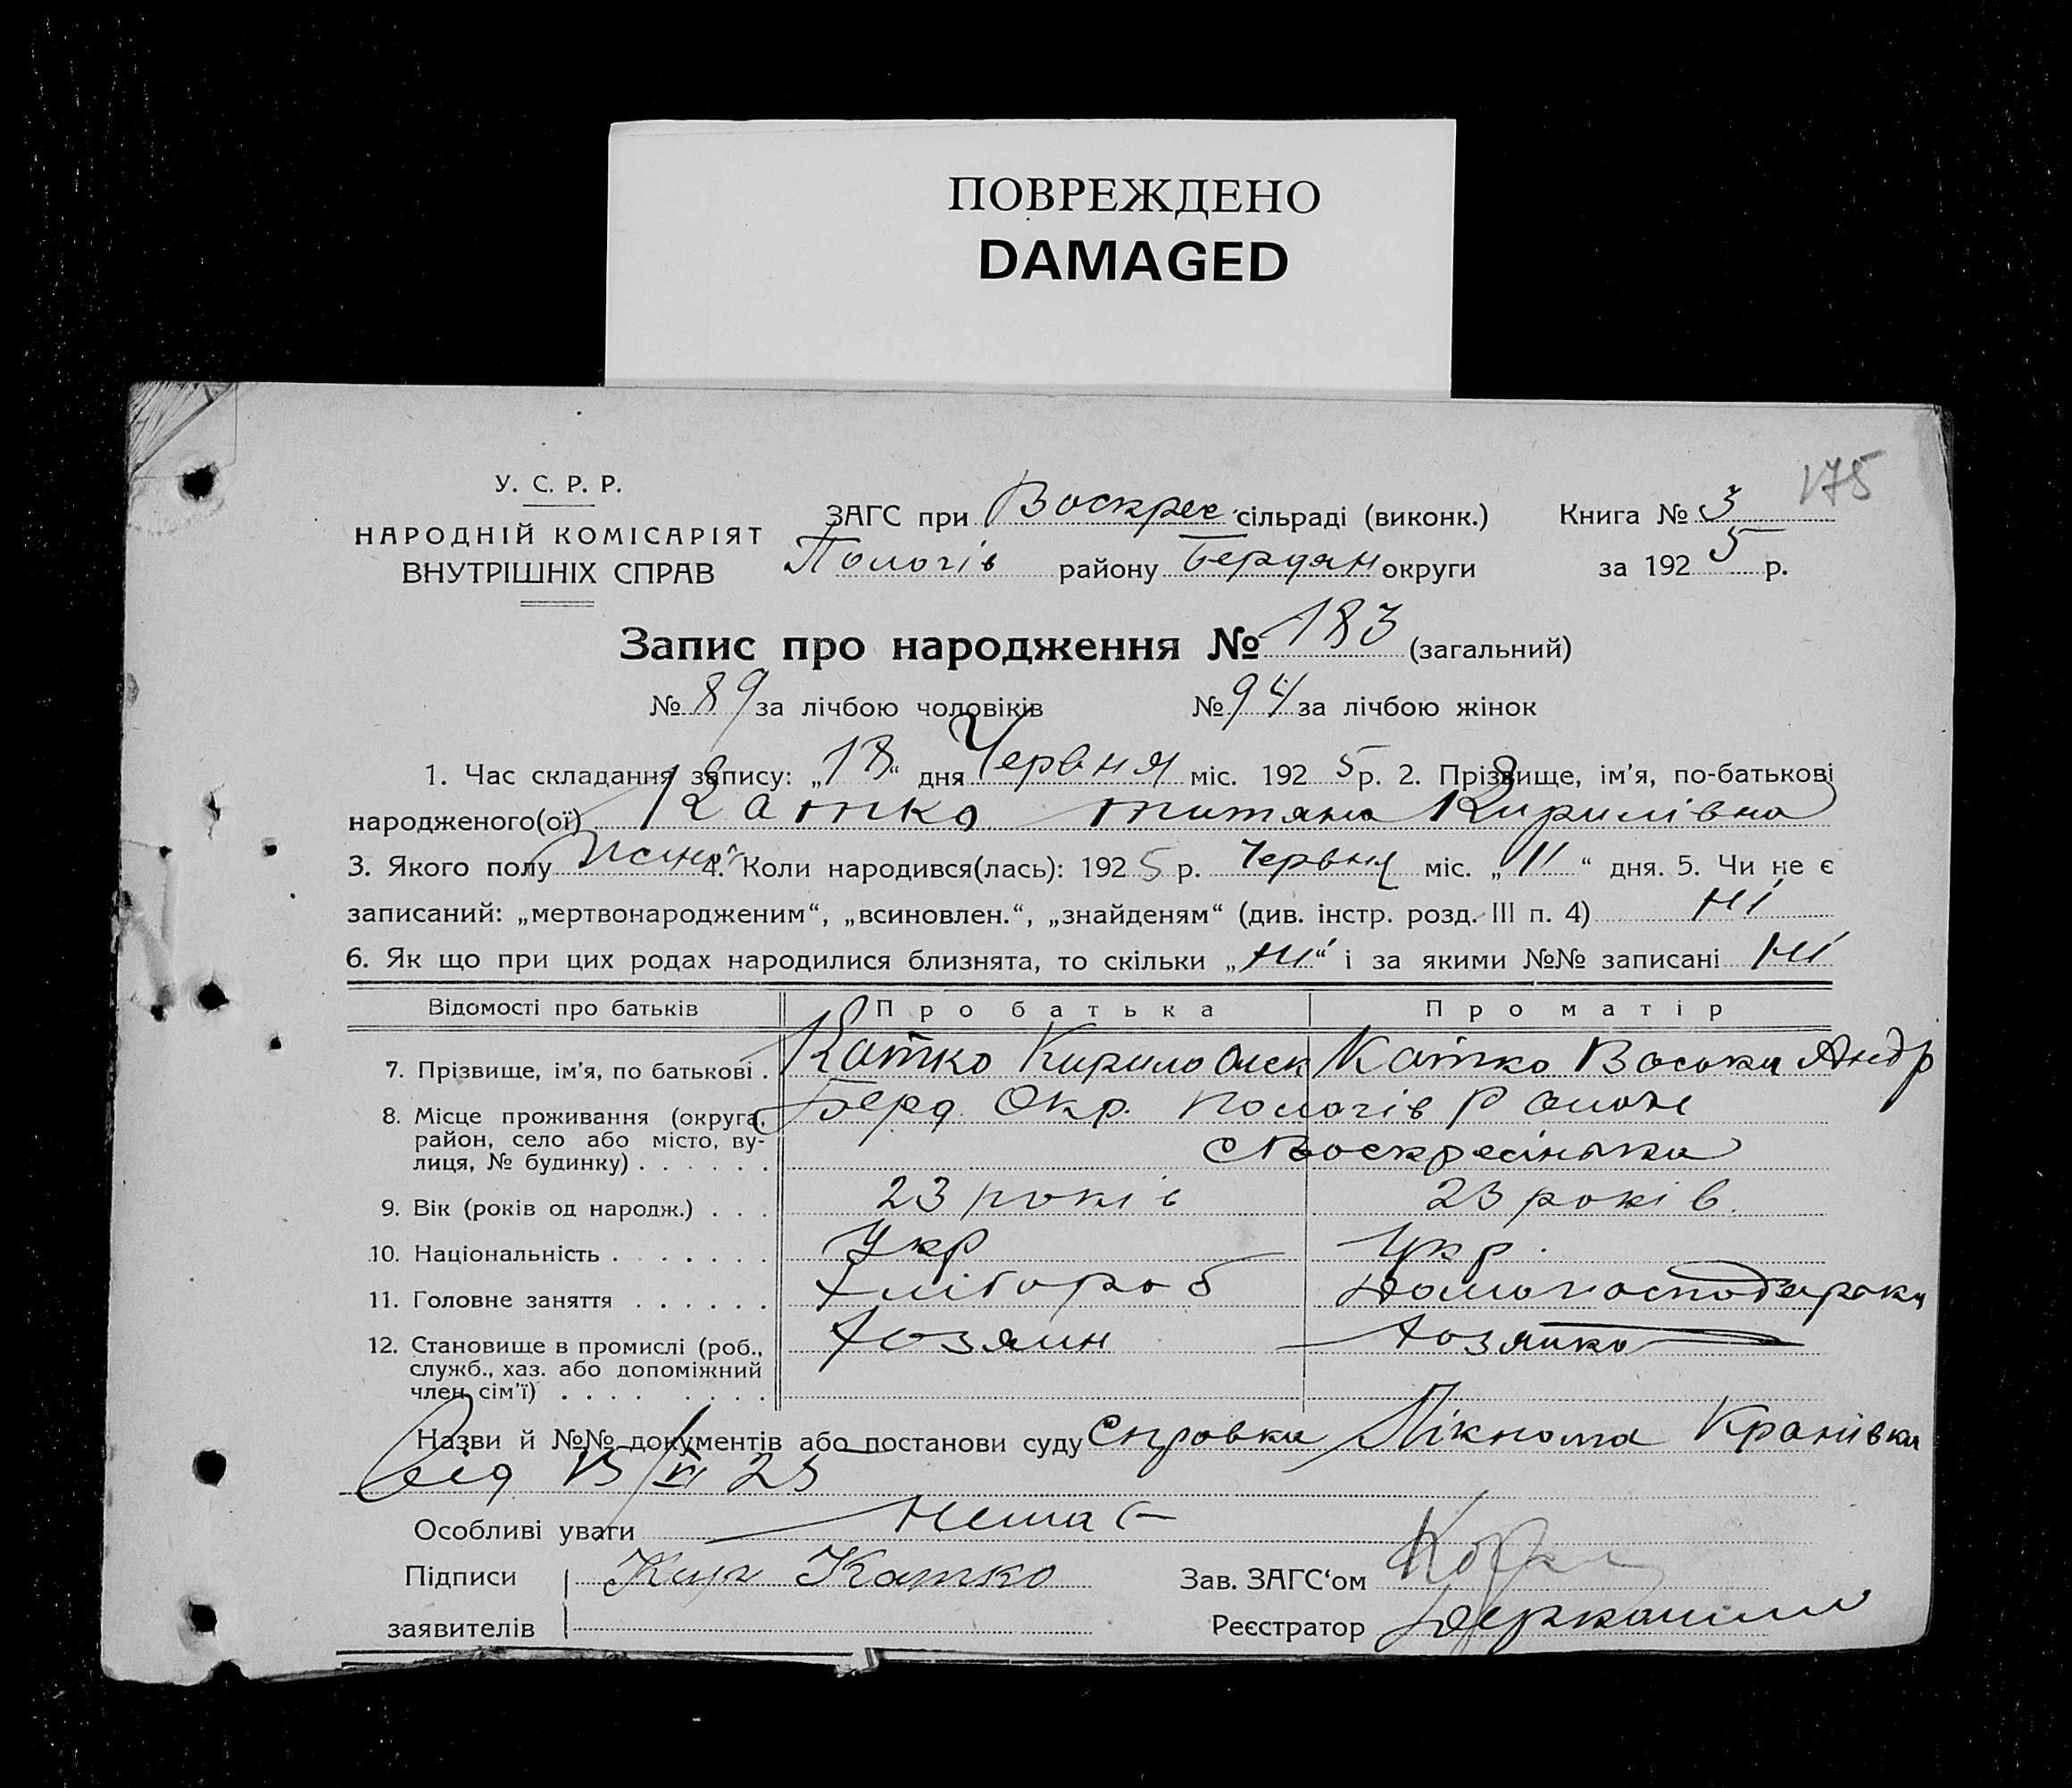 ПОВРЕЖДЕНО
DAMAGED
175
У. С. Р. Р.
НАРОДНІЙ КОМІСАРІЯТ
ВНУТРІШНІХ СПРАВ
ЗАГС при Воскрес. сільраді (виконк.) Книга № 3
Пологів району Бердян округи за 1925 р.
Запис про народження № 183 (загальний)
№ 89 за лічбою чоловіків № 94 за лічбою жінок
1. Час складання запису: „18“ дня Червня міс. 1925 р. 2. Прізвище, ім’я, по-батькові
народженого(ої) Катко Титяна Кирилівна
3. Якого полу 4. Коли народився(лась): 1925 р. Червня міс. „11“ дня. 5. Чи не є
записаний: „мертвонародженим“, „всиновлен.“, „знайденям“ (див. інстр. розд. III п. 4) ні
6. Як що при цих родах народилися близнята, то скільки „ні“ і за якими №№ записані ні
Відомості про батьків Про батька Про матір
7. Прізвище, ім’я, по батькові . Катко Кирило Олек Катко Андр
8. Місце проживання (округа, Берд. Окр. Пологів
район, село або місто, ву-
лиця, № будинку) . . . . . .
9. Вік (років од народж.) . . . 23 років 23 років.
10. Національність . . . . . . . Укр Укр.
11. Головне заняття . . . . . . Хлібороб Домогосподарка
12. Становище в промислі (роб., Хозяин Хозяйка
служб., хаз. або допоміжний
член сім’ї) . . . . . . . .
Назви й №№ документів або постанови суду Справка
від 15/VI 25
Особливі уваги Нема
Підписи Кир Катко Зав. ЗАГС‘ом
заявителів Реєстратор